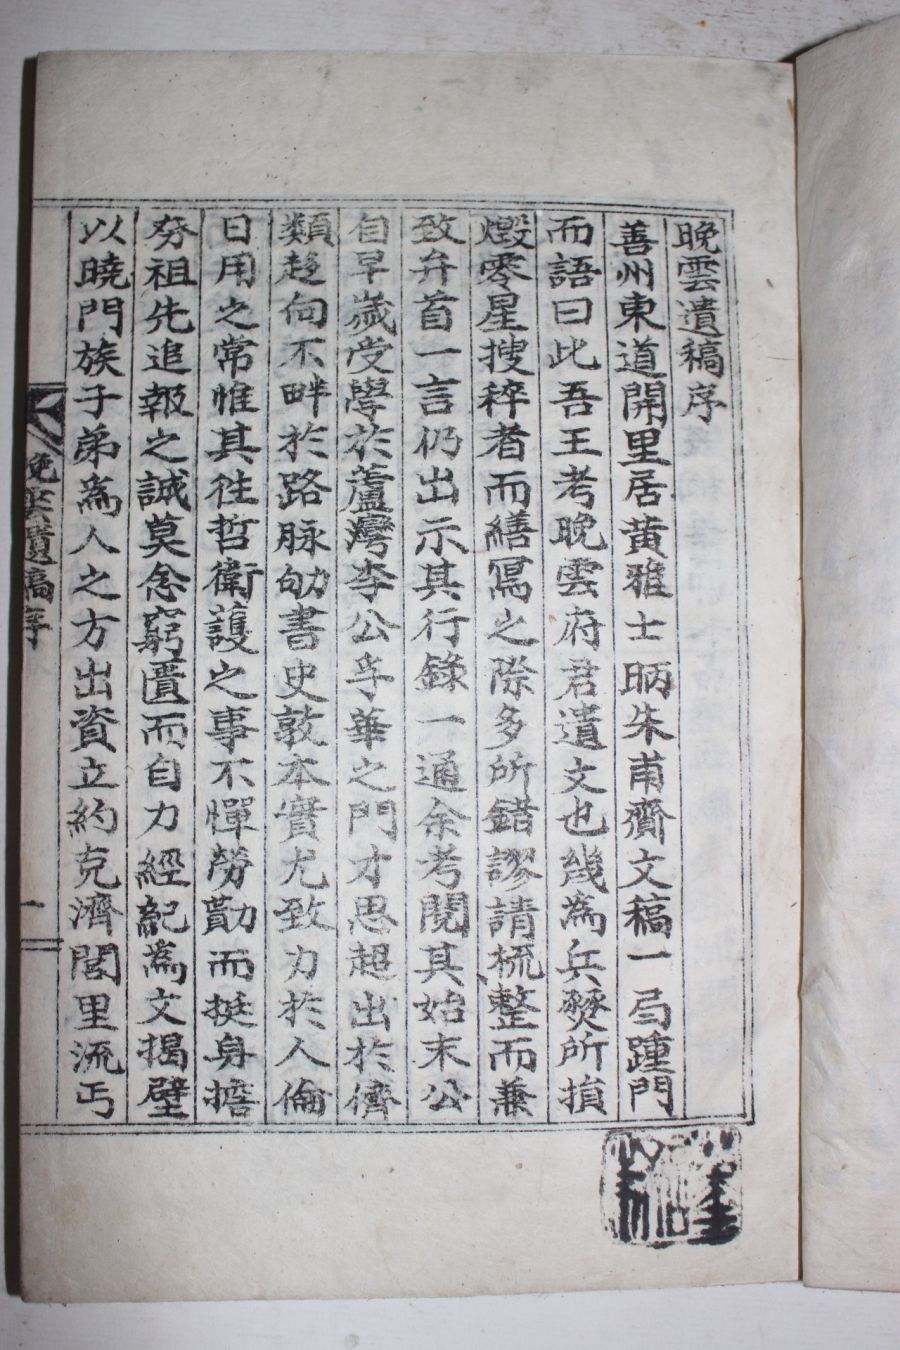 晩雲遺稿序
善州東道開里居黄雅士昞朱甫齎文稿一局踵門
而語曰此吾王考晩雲府君遺文也幾為兵燹所損
燬零星搜稡者而繕寫之際多所錯謬請梳整而兼
致弁首一言仍出示其行錄一通余考閱其始末公
自早歲受學於蘆灣李公孚華之門才思超出於儕
類趍向不畔於路脉劬書史敦本實尤致力於人倫
日用之常惟其徃哲衛護之事不憚勞勩而挺身擔
夯祖先追報之誠莫念窮匱而自力經紀為文揭壁
以曉門族子弟為人之方出資立約克濟閭里流丐
晩雲遺稿序
一